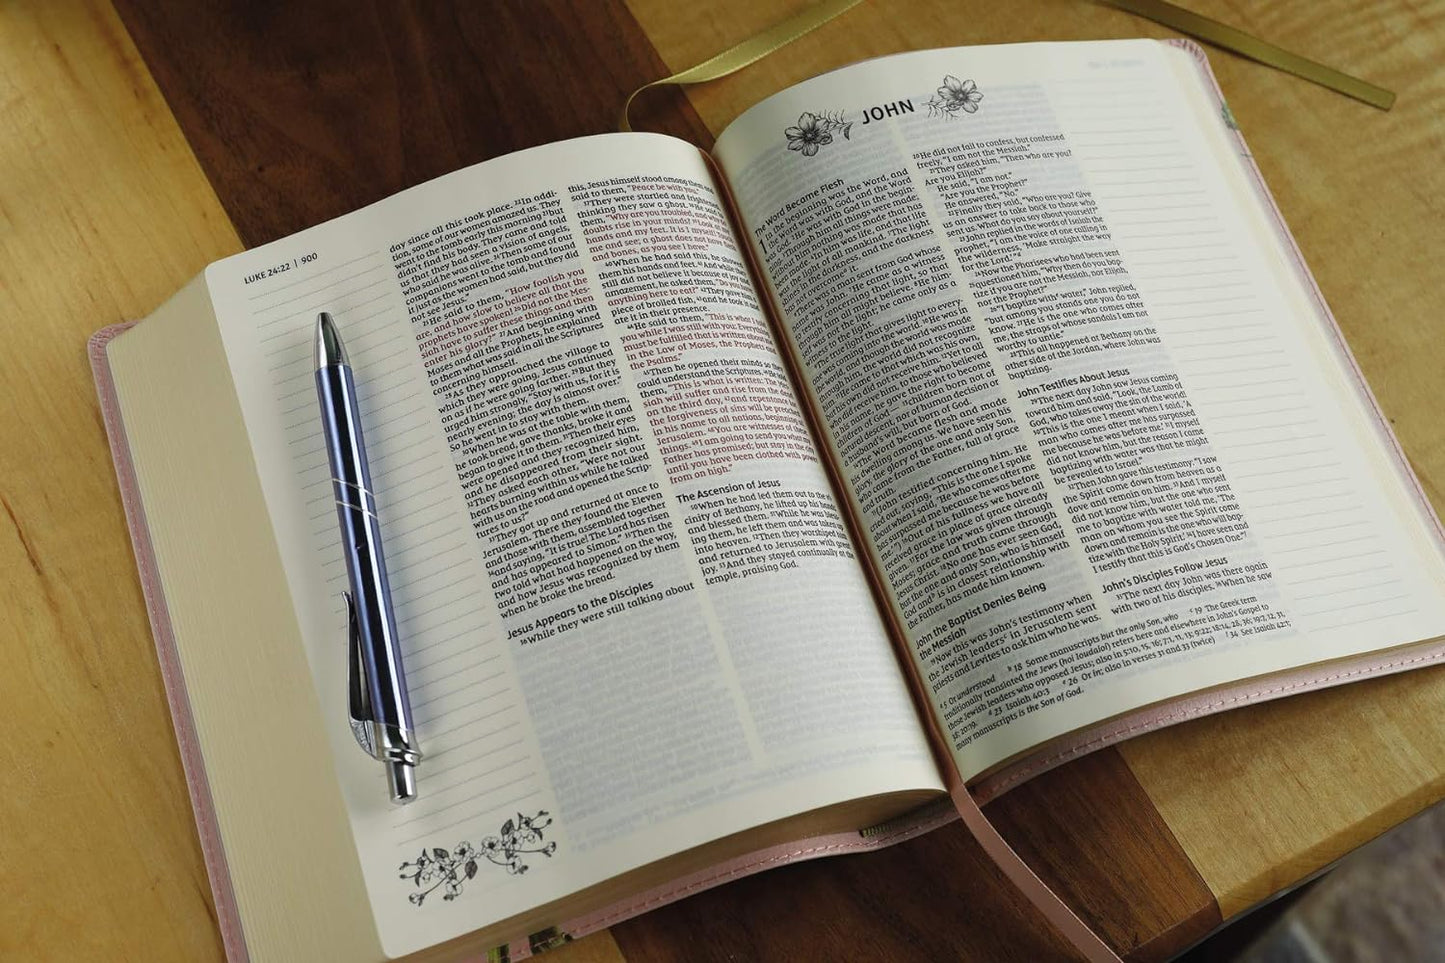 LUKE 24:22 | 900
day since all this took place. 22In addi-
tion, some of our women amazed us. They
went to the tomb early this morning 23but
didn't find his body. They came and told
us that they had seen a vision of angels,
who said he was alive. 24Then some of our
companions went to the tomb and found
it just as the women had said, but they did
not see Jesus."
25He said to them, "How foolish you
are, and how slow to believe all that the
prophets have spoken! 26Did not the Mes-
siah have to suffer these things and then
enter his glory?" 27And beginning with
Moses and all the Prophets, he explained
to them what was said in all the Scriptures
concerning himself.
28As they approached the village to
which they were going, Jesus continued
on as if he were going farther. 29But they
urged him strongly, "Stay with us, for it is
nearly evening; the day is almost over."
So he went in to stay with them.
30When he was at the table with them,
he took bread, gave thanks, broke it and
began to give it to them. 31Then their eyes
were opened and they recognized him,
and he disappeared from their sight.
32They asked each other, "Were not our
hearts burning within us while he talked
with us on the road and opened the Scrip-
tures to us?"
33They got up and returned at once to
Jerusalem. There they found the Eleven
and those with them, assembled together
34and saying, "It is true! The Lord has risen
and has appeared to Simon." 35Then the
two told what had happened on the way,
and how Jesus was recognized by them
when he broke the bread.
Jesus Appears to the Disciples
36While they were still talking about
this, Jesus himself stood among them and
said to them, "Peace be with you."
37They were startled and frightened,
thinking they saw a ghost. 38He said
"Why are you troubled, and why
doubts rise in your minds? 39Look at
hands and my feet. It is I myself!
me and see; a ghost does not have
and bones, as you see I have."
40When he had said this, he showed
them his hands and feet. 41And while they
still did not believe it because of joy and
amazement, he asked them, "Do you
anything here to eat?" 42They gave him a
piece of broiled fish, 43and he took it and
ate it in their presence.
44He said to them, "This is what I
you while I was still with you: Everything
must be fulfilled that is written about
in the Law of Moses, the Prophets and
the Psalms."
45Then he opened their minds so
could understand the Scriptures. 46He
"This is what is written: The
siah will suffer and rise from the dead
on the third day, 47and repentance
the forgiveness of sins will be preached
in his name to all nations, beginning
Jerusalem. 48You are witnesses of
things. 49I am going to send you what my
Father has promised; but stay in the city
until you have been clothed with power
from on high."
The Ascension of Jesus
50When he had led them out to the vi-
cinity of Bethany, he lifted up his hands
and blessed them. 51While he was bless-
ing them, he left them and was taken up
into heaven. 52Then they worshiped him
and returned to Jerusalem with great
joy. 53And they stayed continually at the
temple, praising God.
JOHN
Word Became Flesh
1 the beginning was the Word, and
the Word was with God, and the Word
was God. 2He was with God in the begin-
things were made
nothing was made that has
made. 4In him was life, and that life
the light of all mankind. 5The light
the darkness, and the darkness
overcome it.
a man sent from God whose
name was John. 7He came as a witness
to testify concerning that light, so that
all might believe. 8He
the light; he came only as a
witness to the light.
light that gives light to every-
coming into the world. 10He was in
and though the world was made
the world did not recognize
which was his own,
did not receive him. 12Yet to all
who did receive him, to those who believed
in his name, he gave the right to become
children of God— 13children born not of
natural descent, nor of human decision or
a husband's will, but born of God.
14The Word became flesh and made
his dwelling among us. We have seen
his glory, the glory of the one and only Son,
who came from the Father, full of grace
and truth.
15(John testified concerning him. He
cried out, saying, "This is the one I spoke
about when I said, 'He who comes after me
has surpassed me because he was before
me.'") 16Out of his fullness we have all
received grace in place of grace already
given. 17For the law was given through
Moses; grace and truth came through
Jesus Christ. 18No one has ever seen God,
but the one and only Son, who is himself
God and b is in closest relationship with
the Father, has made him known.
John the Baptist Denies Being
the Messiah
19Now this was John's testimony when
the Jewish leaders c in Jerusalem sent
priests and Levites to ask him who he was.
20He did not fail to confess, but confessed
freely, "I am not the Messiah."
21They asked him, "Then who are you?
Are you Elijah?"
He said, "I am not."
"Are you the Prophet?"
He answered, "No."
22Finally they said, "Who are you? Give
us an answer to take back to those who
sent us. What do you say about yourself?"
23John replied in the words of Isaiah the
prophet, "I am the voice of one calling in
the wilderness, 'Make straight the way
for the Lord.'" d
24Now the Pharisees who had been sent
25questioned him, "Why then do you bap-
tize if you are not the Messiah, nor Elijah,
nor the Prophet?"
26"I baptize with e water," John replied,
"but among you stands one you do not
know. 27He is the one who comes after
me, the straps of whose sandals I am not
worthy to untie."
28This all happened at Bethany on the
other side of the Jordan, where John was
baptizing.
John Testifies About Jesus
29The next day John saw Jesus coming
toward him and said, "Look, the Lamb of
God, who takes away the sin of the world!
30This is the one I meant when I said, 'A
man who comes after me has surpassed
me because he was before me.' 31I myself
did not know him, but the reason I came
baptizing with water was that he might
be revealed to Israel."
32Then John gave this testimony: "I saw
the Spirit come down from heaven as a
dove and remain on him. 33And I myself
did not know him, but the one who sent
me to baptize with water told me, 'The
man on whom you see the Spirit come
down and remain is the one who will bap-
tize with the Holy Spirit.' 34I have seen and
I testify that this is God's Chosen One." f
John's Disciples Follow Jesus
35The next day John was there again
with two of his disciples. 36When he saw
a 5 Or understood b 18 Some manuscripts but the only Son, who c 19 The Greek term
traditionally translated the Jews (hoi Ioudaioi) refers here and elsewhere in John's Gospel to
those Jewish leaders who opposed Jesus; also in 5:10, 15, 16; 7:1, 11, 13; 9:22; 18:14, 28, 36; 19:7, 12, 31,
38; 20:19. d 23 Isaiah 40:3 e 26 Or in; also in verses 31 and 33 (twice) f 34 See Isaiah 42:1;
many manuscripts is the Son of God.